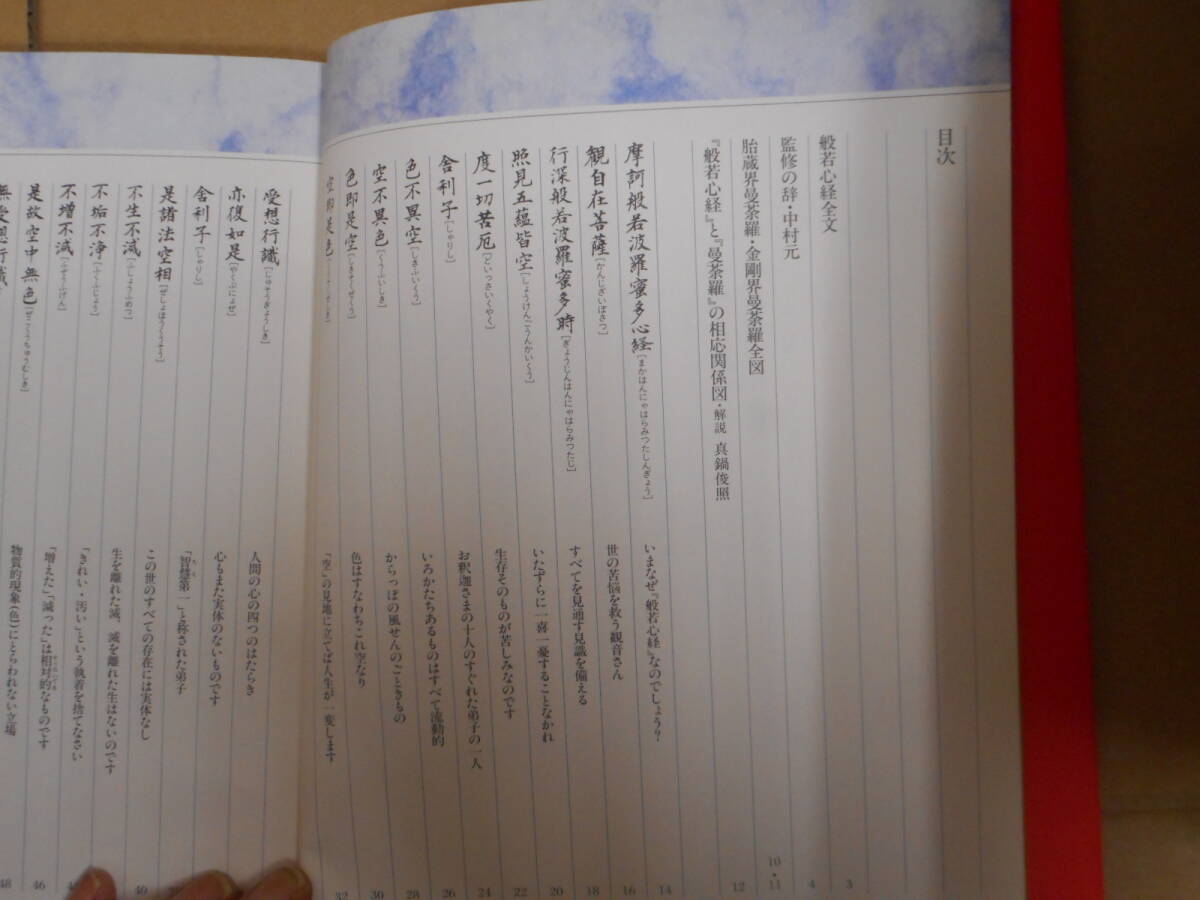 目次
般若心経全文 3
監修の辞・中村元 4
胎蔵界曼荼羅・金剛界曼荼羅全図 10・11
『般若心経』と『曼荼羅』の相応関係図・解説 真鍋俊照 12
摩訶般若波羅蜜多心経[まかはんにゃはらみつたしんぎょう] いまなぜ『般若心経』なのでしょう? 14
観自在菩薩[かんじざいぼさつ] 世の苦悩を救う観音さん 16
行深般若波羅蜜多時[ぎょうじんはんにゃはらみつたじ] すべてを見通す見識を備える 18
照見五蘊皆空[しょうけんごうんかいくう] いたずらに一喜一憂することなかれ 20
度一切苦厄[どいっさいくやく] 生存そのものが苦しみなのです 22
舎利子[しゃりし] お釈迦さまの十人のすぐれた弟子の一人 24
色不異空[しきふいくう] いろかたちあるものはすべて流動的 26
空不異色[くうふいしき] からっぽの風せんのごときもの 28
色即是空[しきそくぜくう] 色はすなわちこれ空なり 30
空即是色 「空」の見地に立てば人生が一変します 32
受想行識[じゅそうぎょうしき] 人間の心の四つのはたらき
亦復如是[やくぶにょぜ] 心もまた実体のないものです
舎利子[しゃりし] 「智慧第一」と称された弟子
是諸法空相[ぜしょほうくうそう] この世のすべての存在には実体なし
不生不滅[ふしょうふめつ] 生を離れた滅、滅を離れた生はないのです 40
不垢不浄[ふくふじょう] 「きれい・汚い」という執着を捨てなさい
不増不減[ふぞうふげん] 「増えた」「減った」は相対的なものです
是故空中無色[ぜこくうちゅうむしき] 物質的現象(色)にとらわれない立場 46
無受想行識 48